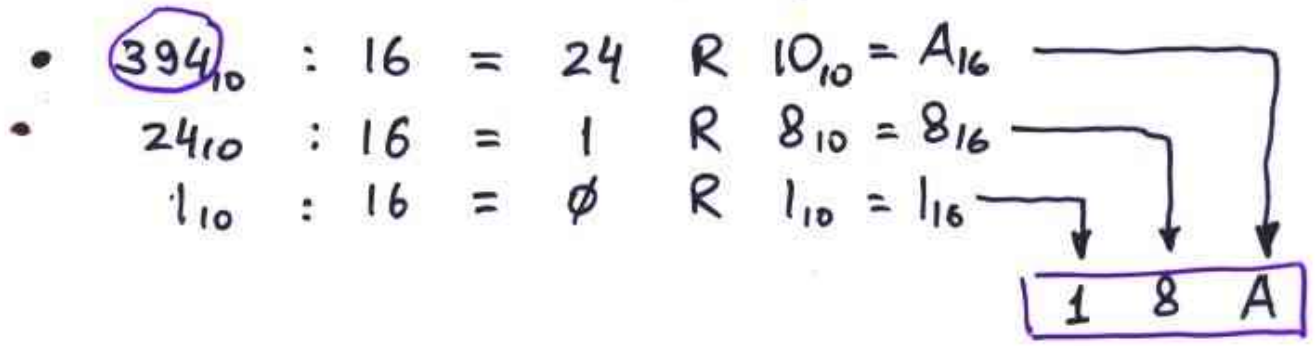 • 394₁₀ : 16 = 24 R 10₁₀ = A₁₆
• 24₁₀ : 16 = 1 R 8₁₀ = 8₁₆
1₁₀ : 16 = ∅ R 1₁₀ = 1₁₆
1 8 A